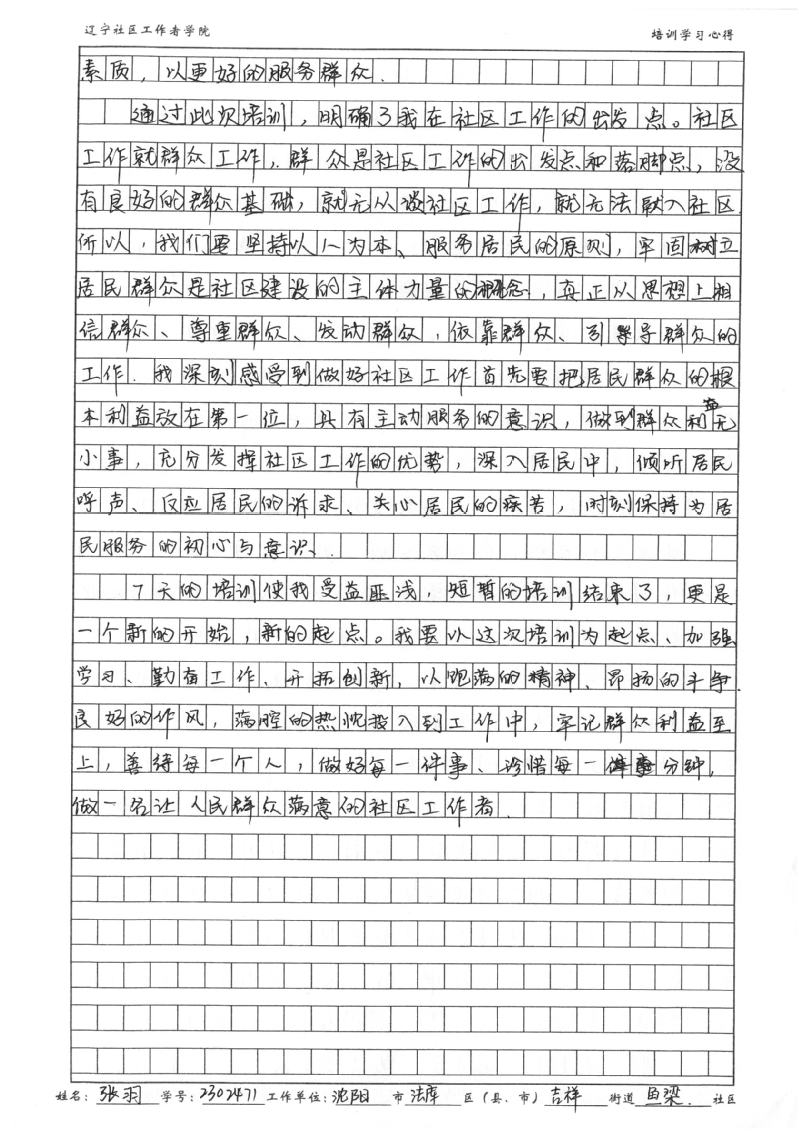 辽宁社区工作者学院 培训学习心得
素质，以更好的服务群众.
通过此次培训，明确了我在社区工作的出发点。社区
工作就群众工作，群众是社区工作的出发点和落脚点，没
有良好的群众基础，就无从谈社区工作，就无法融入社区.
所以，我们要坚持以人为本、服务居民的原则，牢固树立
居民群众是社区建设的主体力量的概念，真正从思想上相
信群众、尊重群众、发动群众，依靠群众、引导群众的
工作.我深刻感受到做好社区工作首先要把居民群众的根
本利益放在第一位，具有主动服务的意识，做到群众利益无
小事，充分发挥社区工作的优势，深入居民中，倾听居民
呼声、反应居民的诉求、关心居民的疾苦，时刻保持为居
民服务的初心与意识.
7天的培训使我受益匪浅，短暂的培训结束了，更是
一个新的开始，新的起点。我要以这次培训为起点、加强
学习、勤奋工作、开拓创新，以饱满的精神、昂扬的斗争.
良好的作风，满腔的热忱投入到工作中，牢记群众利益至
上，善待每一个人，做好每一件事、珍惜每一分钟，
做一名让人民群众满意的社区工作者.
姓名：张羽 学号：2302471 工作单位：沈阳 市 法库 区（县、市）吉祥 街道 鱼梁. 社区